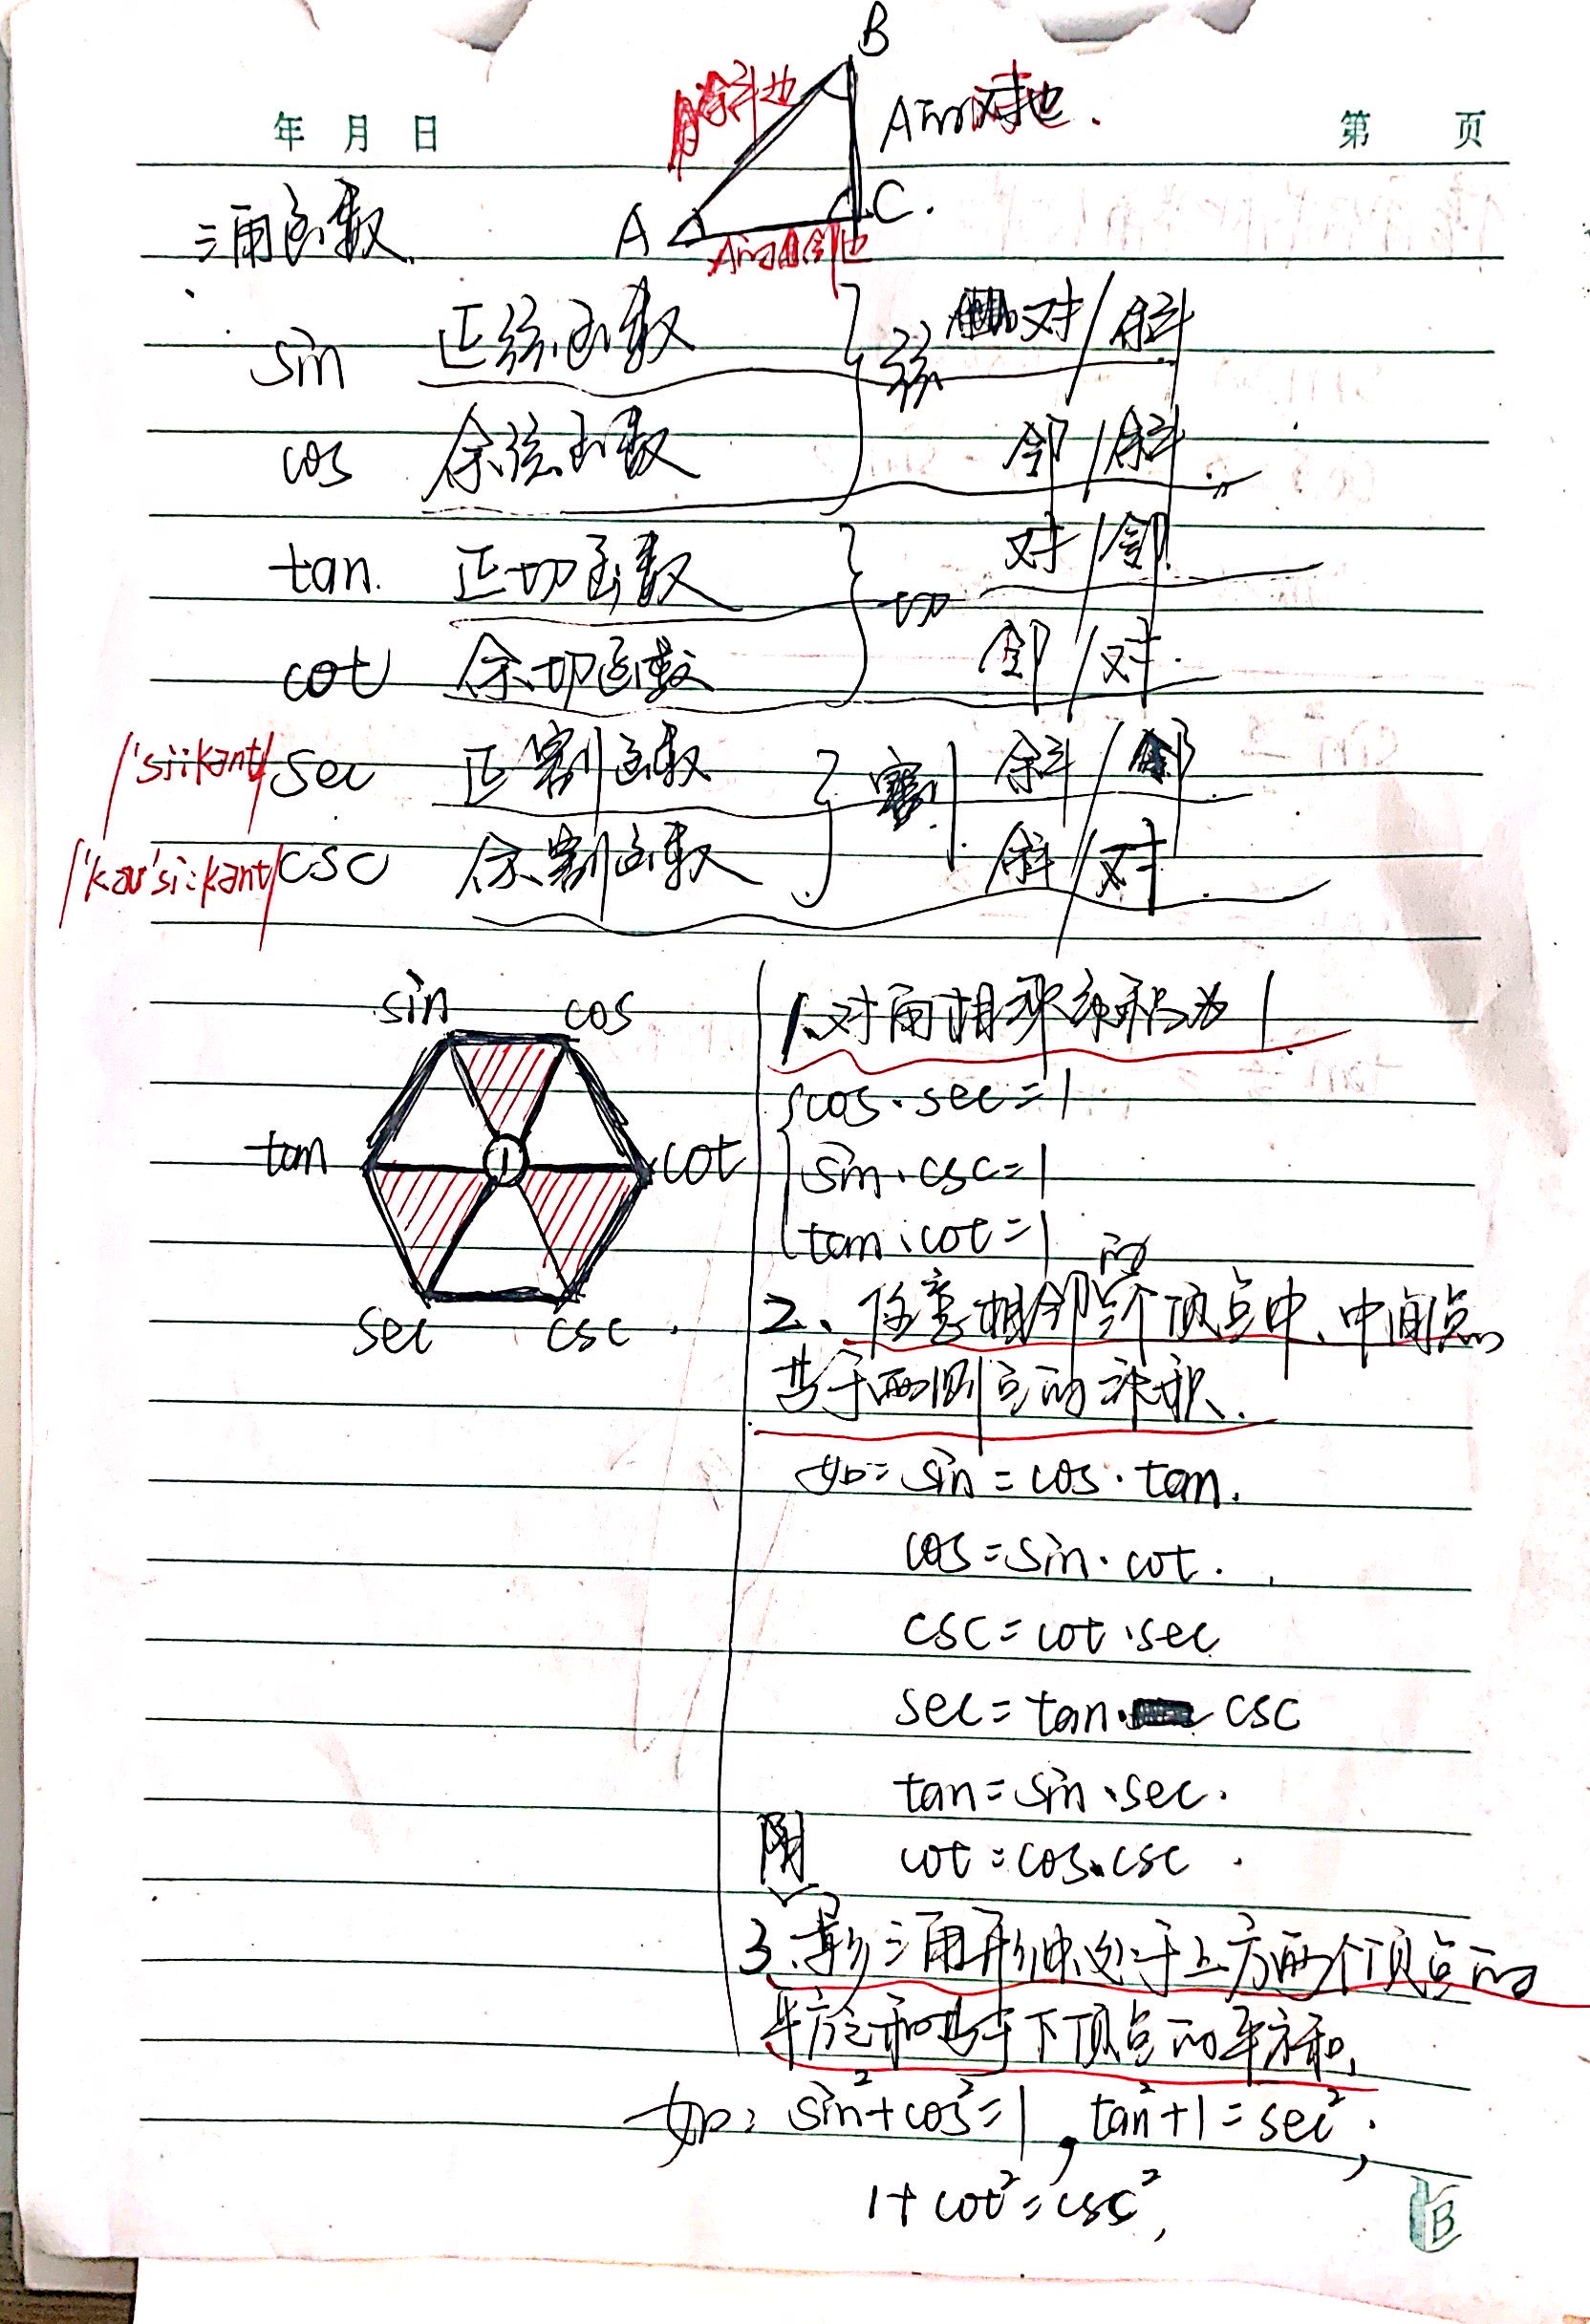 B
斜边
A的对边.
年 月 日
第 页
A
C.
三角函数.
A的邻边
sin 正弦函数 弦 对/斜
cos 余弦函数 邻/斜
tan. 正切函数 切 对/邻
cot 余切函数 邻/对.
/'si:kant/ sec 正割函数 割 斜/邻
/'kəu'si:kant/ csc 余割函数 斜/对
sin cos
tan 1 cot
sec csc.
1.对角相乘乘积为1.
cos·sec=1
sin·csc=1
tan·cot=1
2、任意相邻的三个顶点中、中间点
等于两侧点的乘积.
如:sin=cos·tan.
cos=sin·cot.
csc=cot·sec
sec=tan·csc
tan=sin·sec.
cot=cos·csc.
阴
3.影三角形中处于上方两个顶点的
平方之和等于下顶点的平方和,
如:sin²+cos²=1,tan²+1=sec²,
1+cot²=csc²,
B